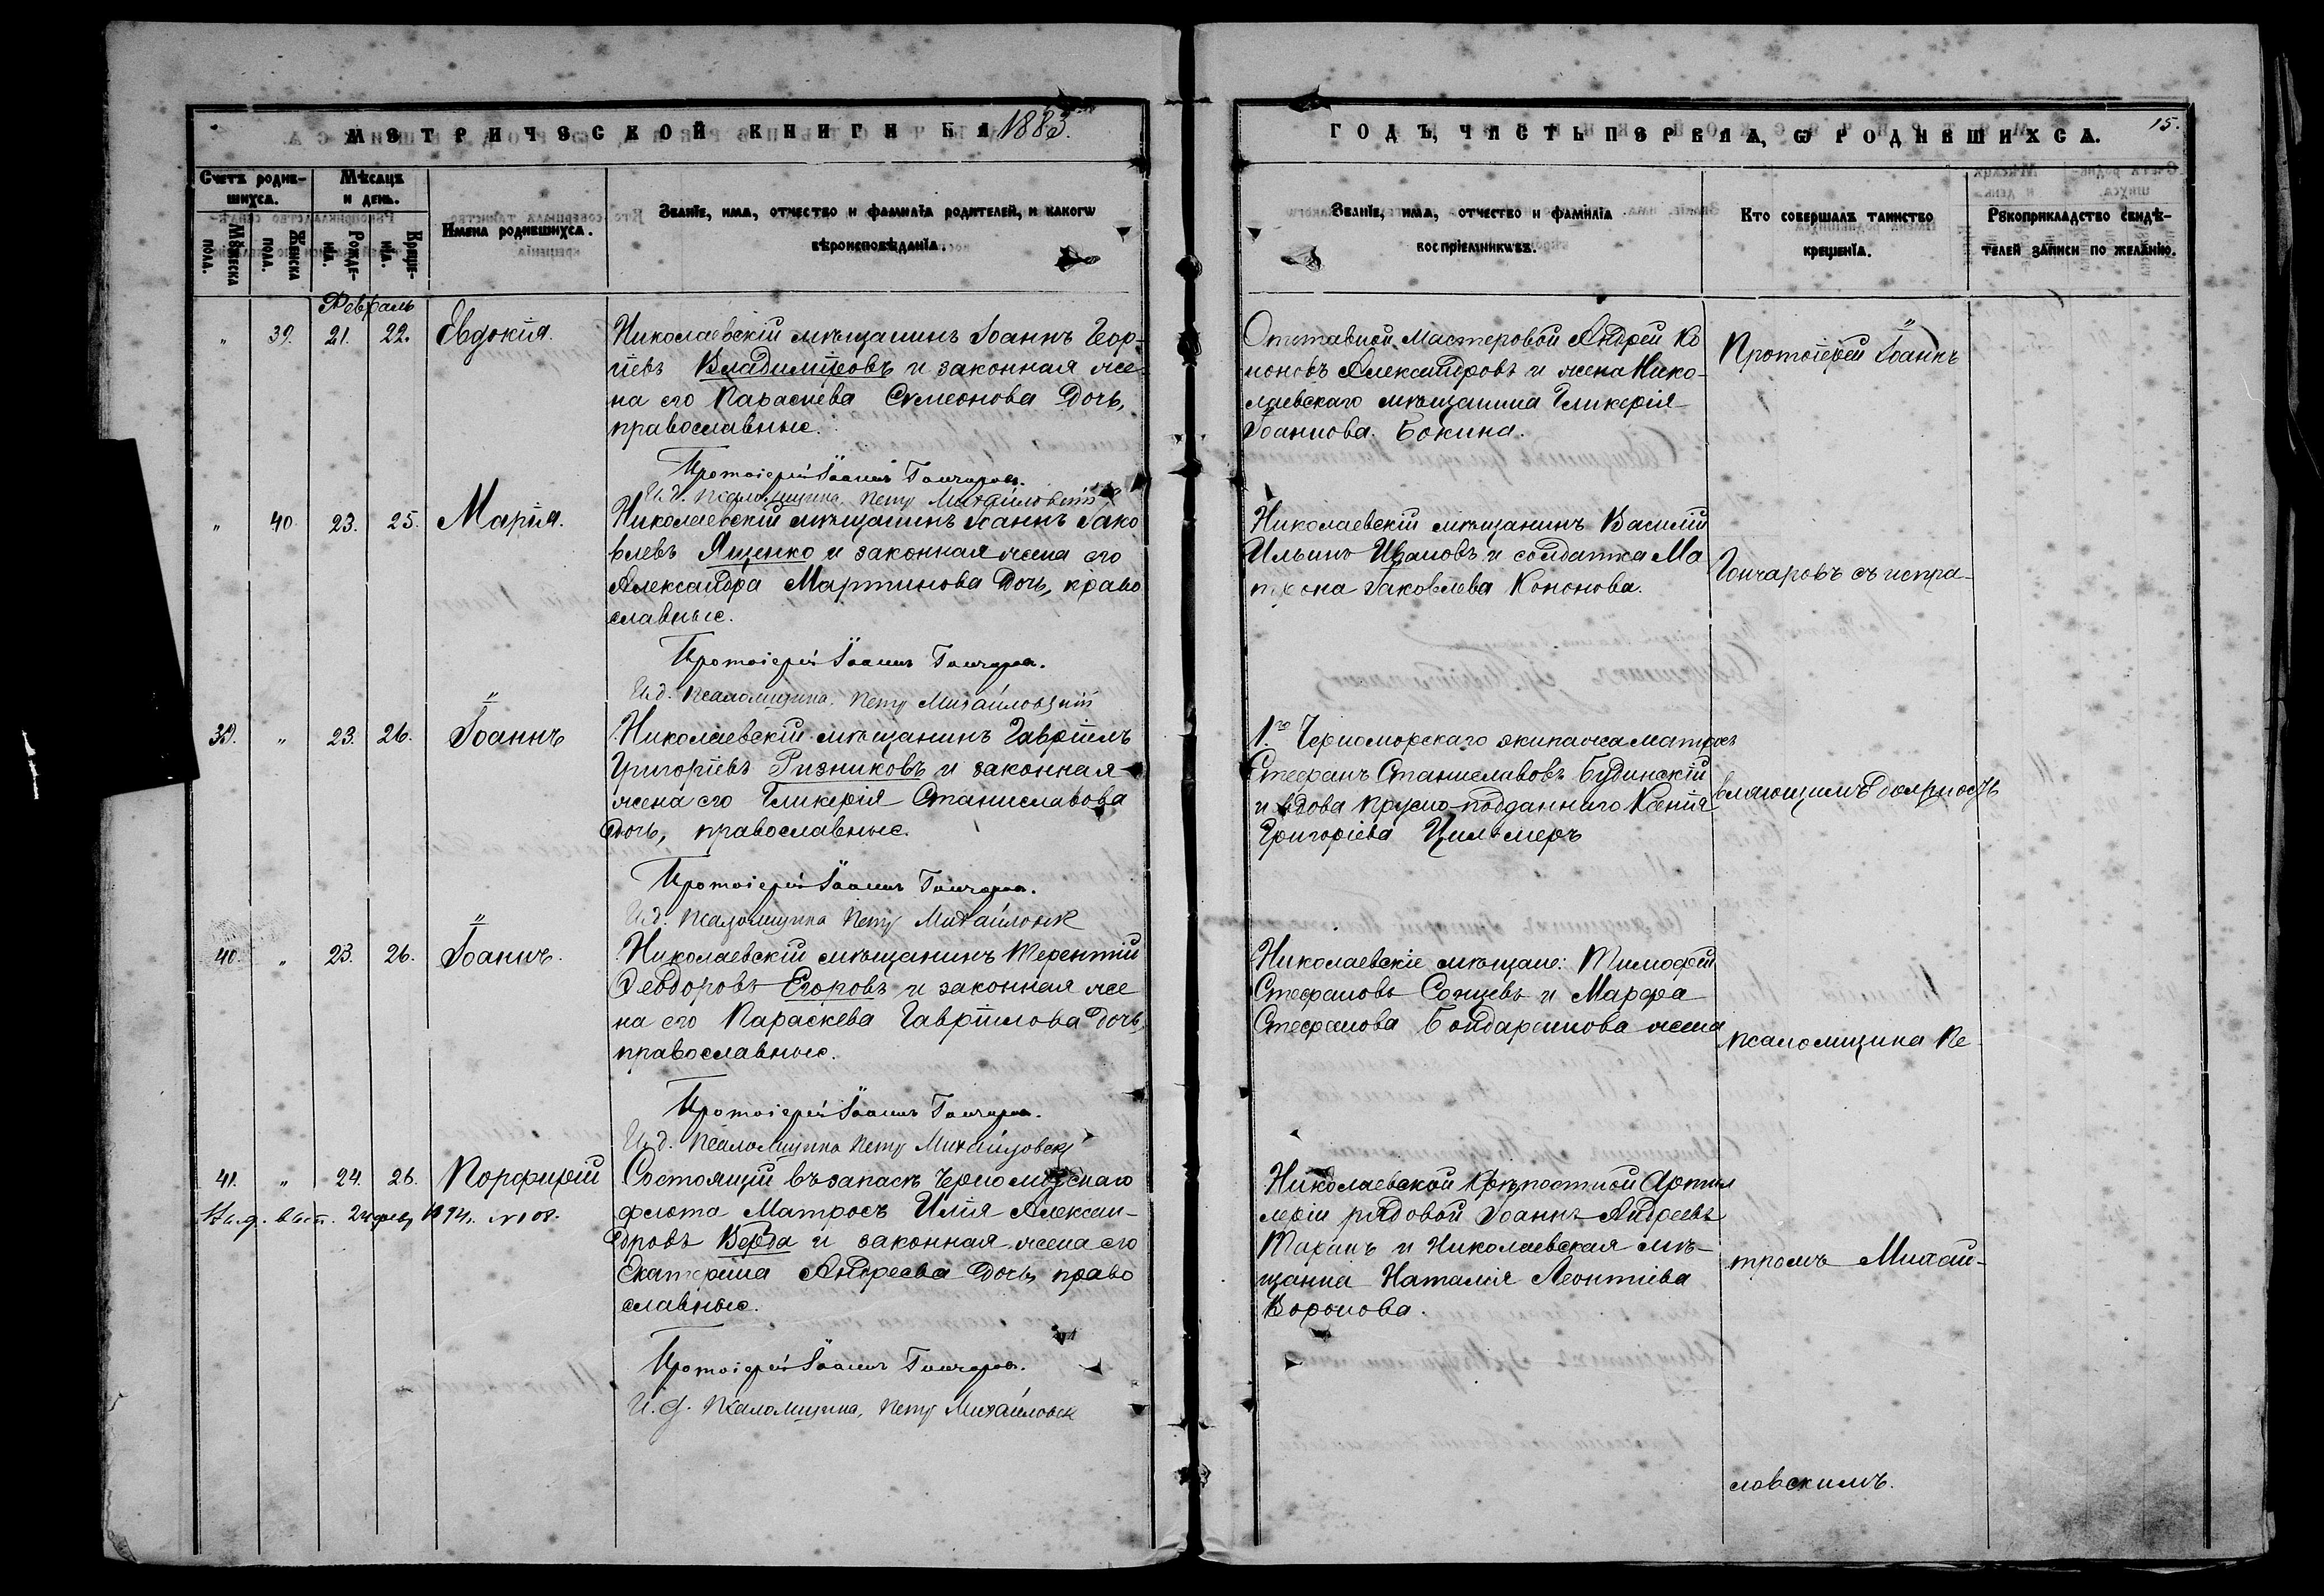 МЕТРИЧЕСКОЙ КНИГИ НА 1883.
Счетъ родив-
шихся.
Мѣсяцъ
и день.
Мꙋжеска
пола.
Женска
пола.
Рожде-
нія.
Креще-
нія.
Имена родившихся.
Званіе, имя, отчество и фамилія родителей, и какогѡ
вѣроисповѣданія.
Февраль
" 39. 21. 22. Евдокія.
Николаевскій мѣщанинъ Іоаннъ Геор-
гіевъ Владиміровъ и законная же-
на его Параскева Симеонова дочь,
православные.
Протоіерей Іоаннъ Гончаровъ.
И.д. псаломщика Петръ Михайловскій
" 40. 23. 25. Марія.
Николаевскій мѣщанинъ Іоаннъ Іако
влевъ Ященко и законная жена его
Александра Мартинова дочь, право
славные.
Протоіерей Іоаннъ Гончаровъ.
И.д. псаломщика, Петръ Михайловскій
39. " 23. 26. Іоаннъ
Николаевскій мѣщанинъ Гавріилъ
Григоріевъ Ризниковъ и законная
жена его Гликерія Станиславова
дочь, православные.
Протоіерей Іоаннъ Гончаровъ.
И.д. псаломщика Петръ Михайловск
40. " 23. 26. Іоаннъ.
Николаевскій мѣщанинъ Терентій
Ѳеодоровъ Егоровъ и законная же
на его Параскева Гавріилова дочь,
православные.
Протоіерей Іоаннъ Гончаровъ.
И.д. псаломщика Петръ Михайловскій
41. " 24. 26. Порфирій
Выд. вып. 24 фев. 1894. №108.
Состоящій въ запасѣ Черноморскаго
флота Матросъ Илія Алексан-
дровъ Верба и законная жена его
Екатерина Андреева дочь, право
славные.
Протоіерей Іоаннъ Гончаровъ.
И.д. псаломщика, Петръ Михайловск
ГОДЪ, ЧАСТЬ ПЕРВАЯ, Ѡ РОДИВШИХСЯ.
15.
Званіе, имя, отчество и фамилія
воспріемниковъ.
Кто совершалъ таинство
крещенія.
Рꙋкоприкладство свидѣ-
телей записи по желанію.
Отставной Мастеровой Андрей Ко
ноновъ Александровъ и жена Нико-
лаевскаго мѣщанина Гликерія
Іоаннова Бокина.
Протоіерей Іоаннъ
Николаевскій мѣщанинъ Василій
Ильинъ Ивановъ и солдатка Ма
трона Іаковлева Кононова.
Гончаровъ съ испра-
1.го Черноморскаго экипажа матросъ
Стефанъ Станиславовъ Будинскій
и вдова прусно-подданнаго Ксенія
Григоріева Цильмеръ
вляющимъ должность
Николаевскіе мѣщане: Тимофей
Стефановъ Сонцевъ и Марфа
Стефанова Бондаренкова жена
псаломщика Пе
Николаевской крѣпостной Артил
леріи рядовой Іоаннъ Андреевъ
Таранъ и Николаевская мѣ-
щанка Наталія Леонтіева
Воронова.
тромъ Михай-
ловскимъ.